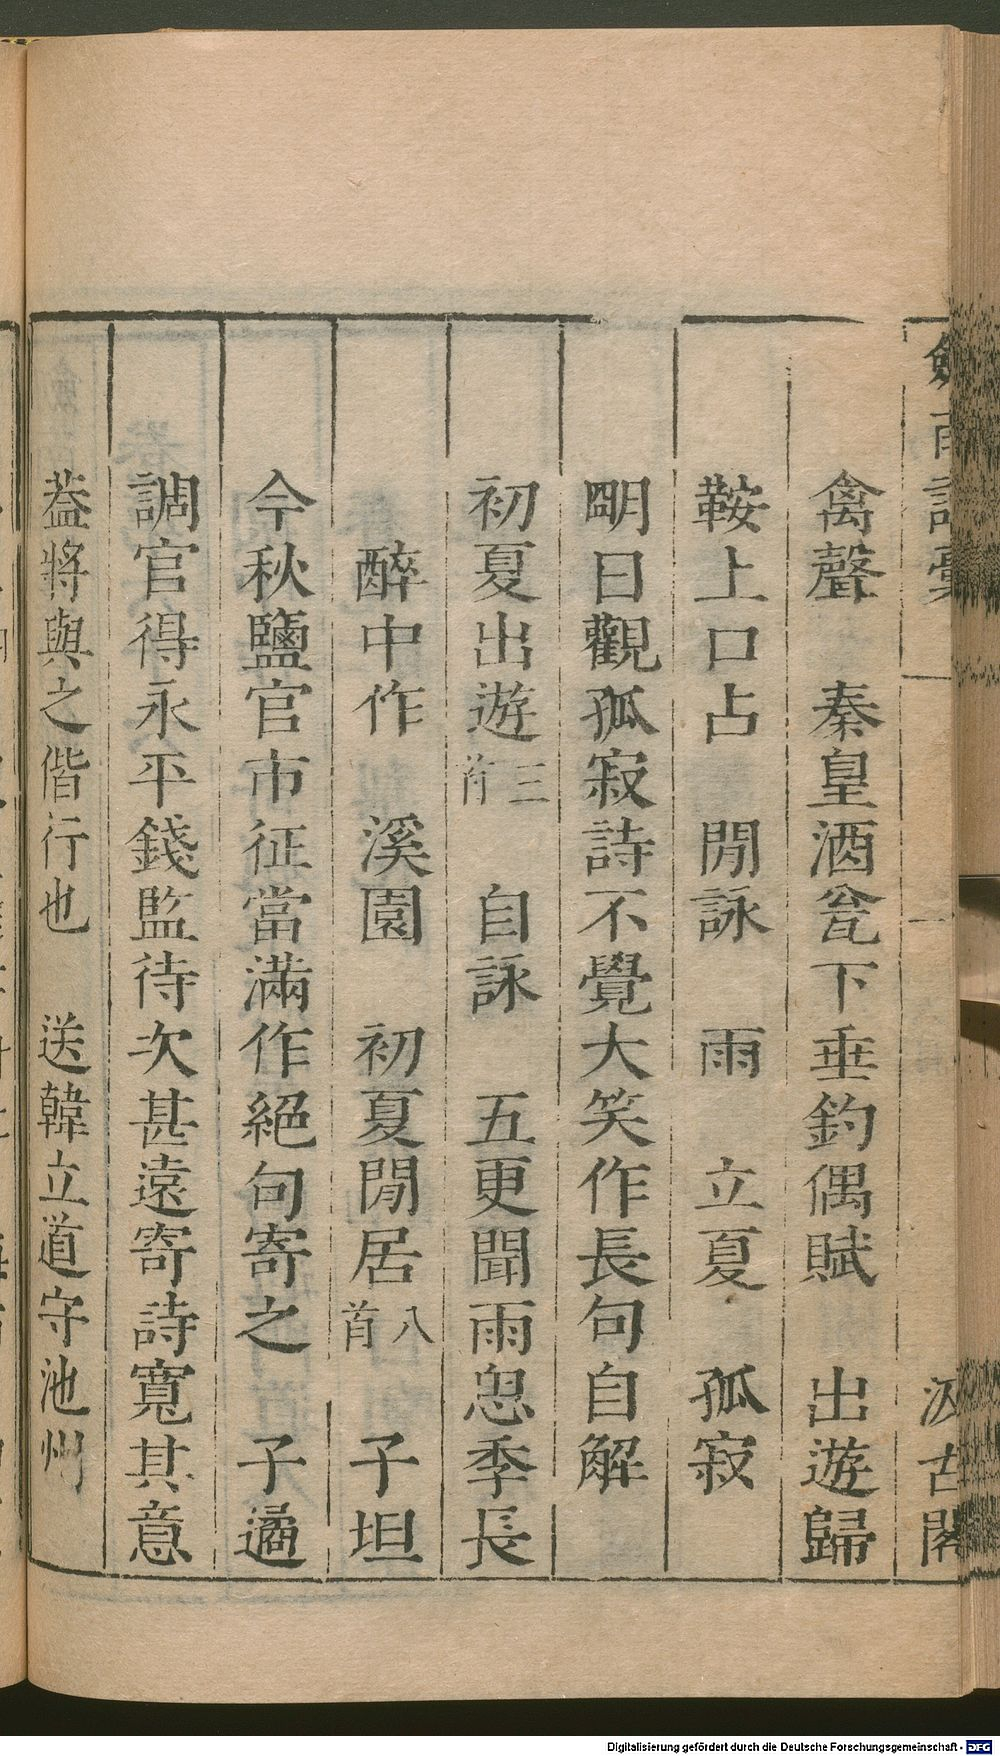 劍南詩稾 汲古閣
禽聲 秦皇酒瓮下垂釣偶賦 出遊歸
鞍上口占 閒詠 雨 立夏 孤寂
明日觀孤寂詩不覺大笑作長句自解
初夏出遊三首 自詠 五更聞雨思季長
醉中作 溪園 初夏閒居八首 子坦
今秋鹽官市征當滿作絕句寄之 子遹
調官得永平錢監待次甚遠寄詩寬其意
葢將與之偕行也 送韓立道守池州
Digitalisierung gefördert durch die Deutsche Forschungsgemeinschaft - DFG